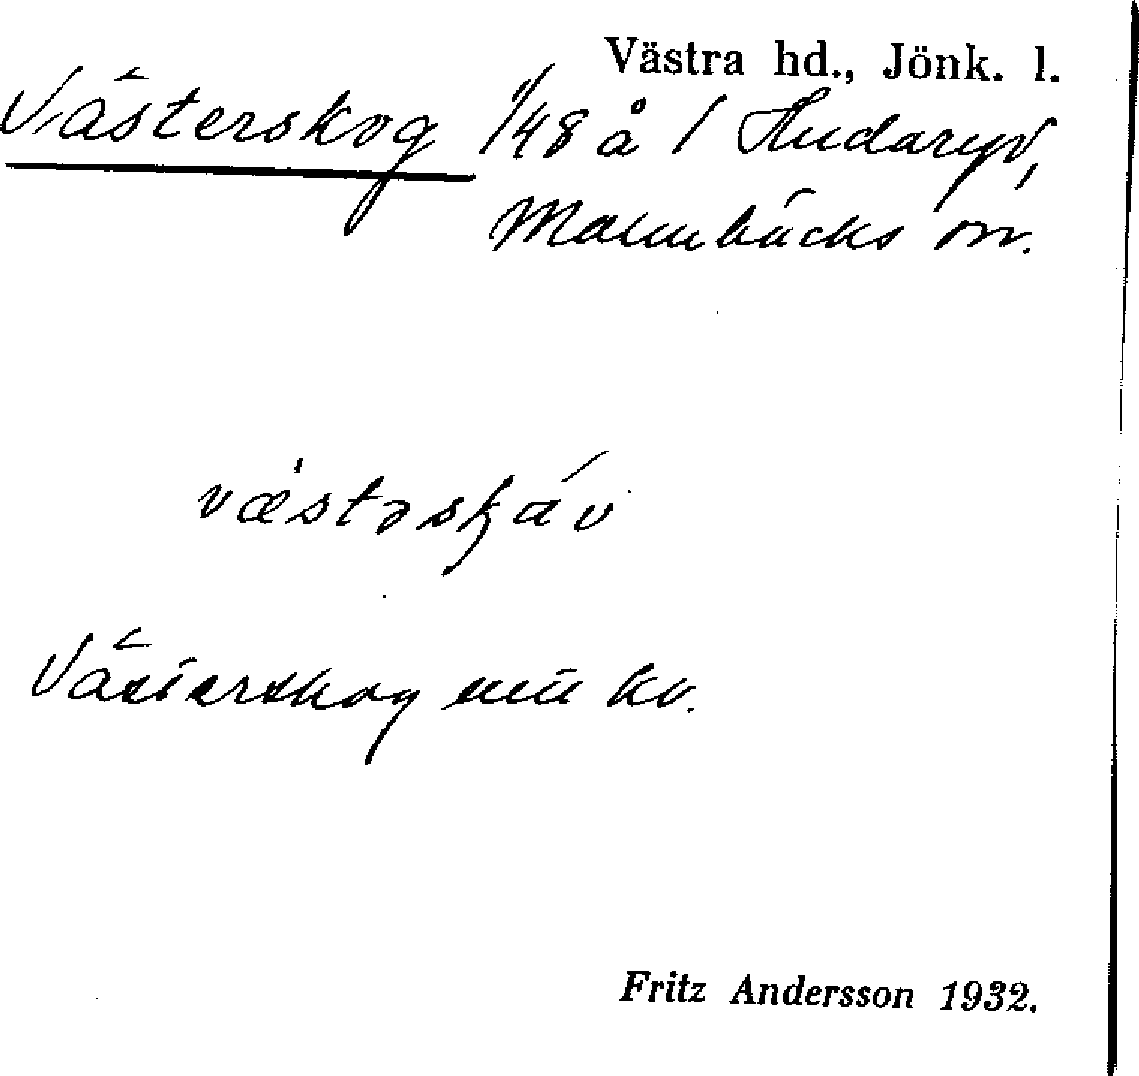 Västra hd., Jönk. l.
Västerskog 1/48 å 1 Hudaryd,
Malmbäcks sn.
væstəskáv
Västerskog uu kv.
Fritz Andersson 1932.